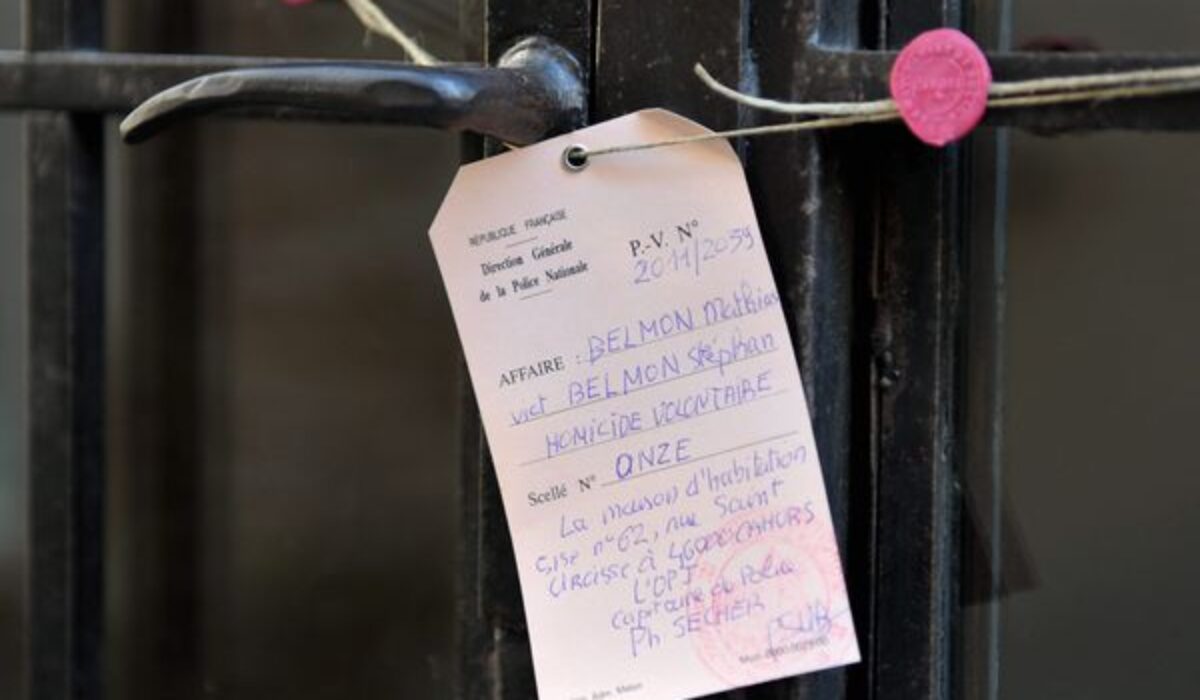 RÉPUBLIQUE FRANÇAISE
Direction Générale
de la Police Nationale
P.-V. N°
2011/2039
AFFAIRE : BELMON Mathieu
vict BELMON Stéphan
HOMICIDE VOLONTAIRE
Scellé N° ONZE
La maison d'habitation
sise n°62, rue Saint
Urcisse à 46000 CAHORS
L'OPJ
Capitaine de Police
Ph SECHER
Adm. Melun